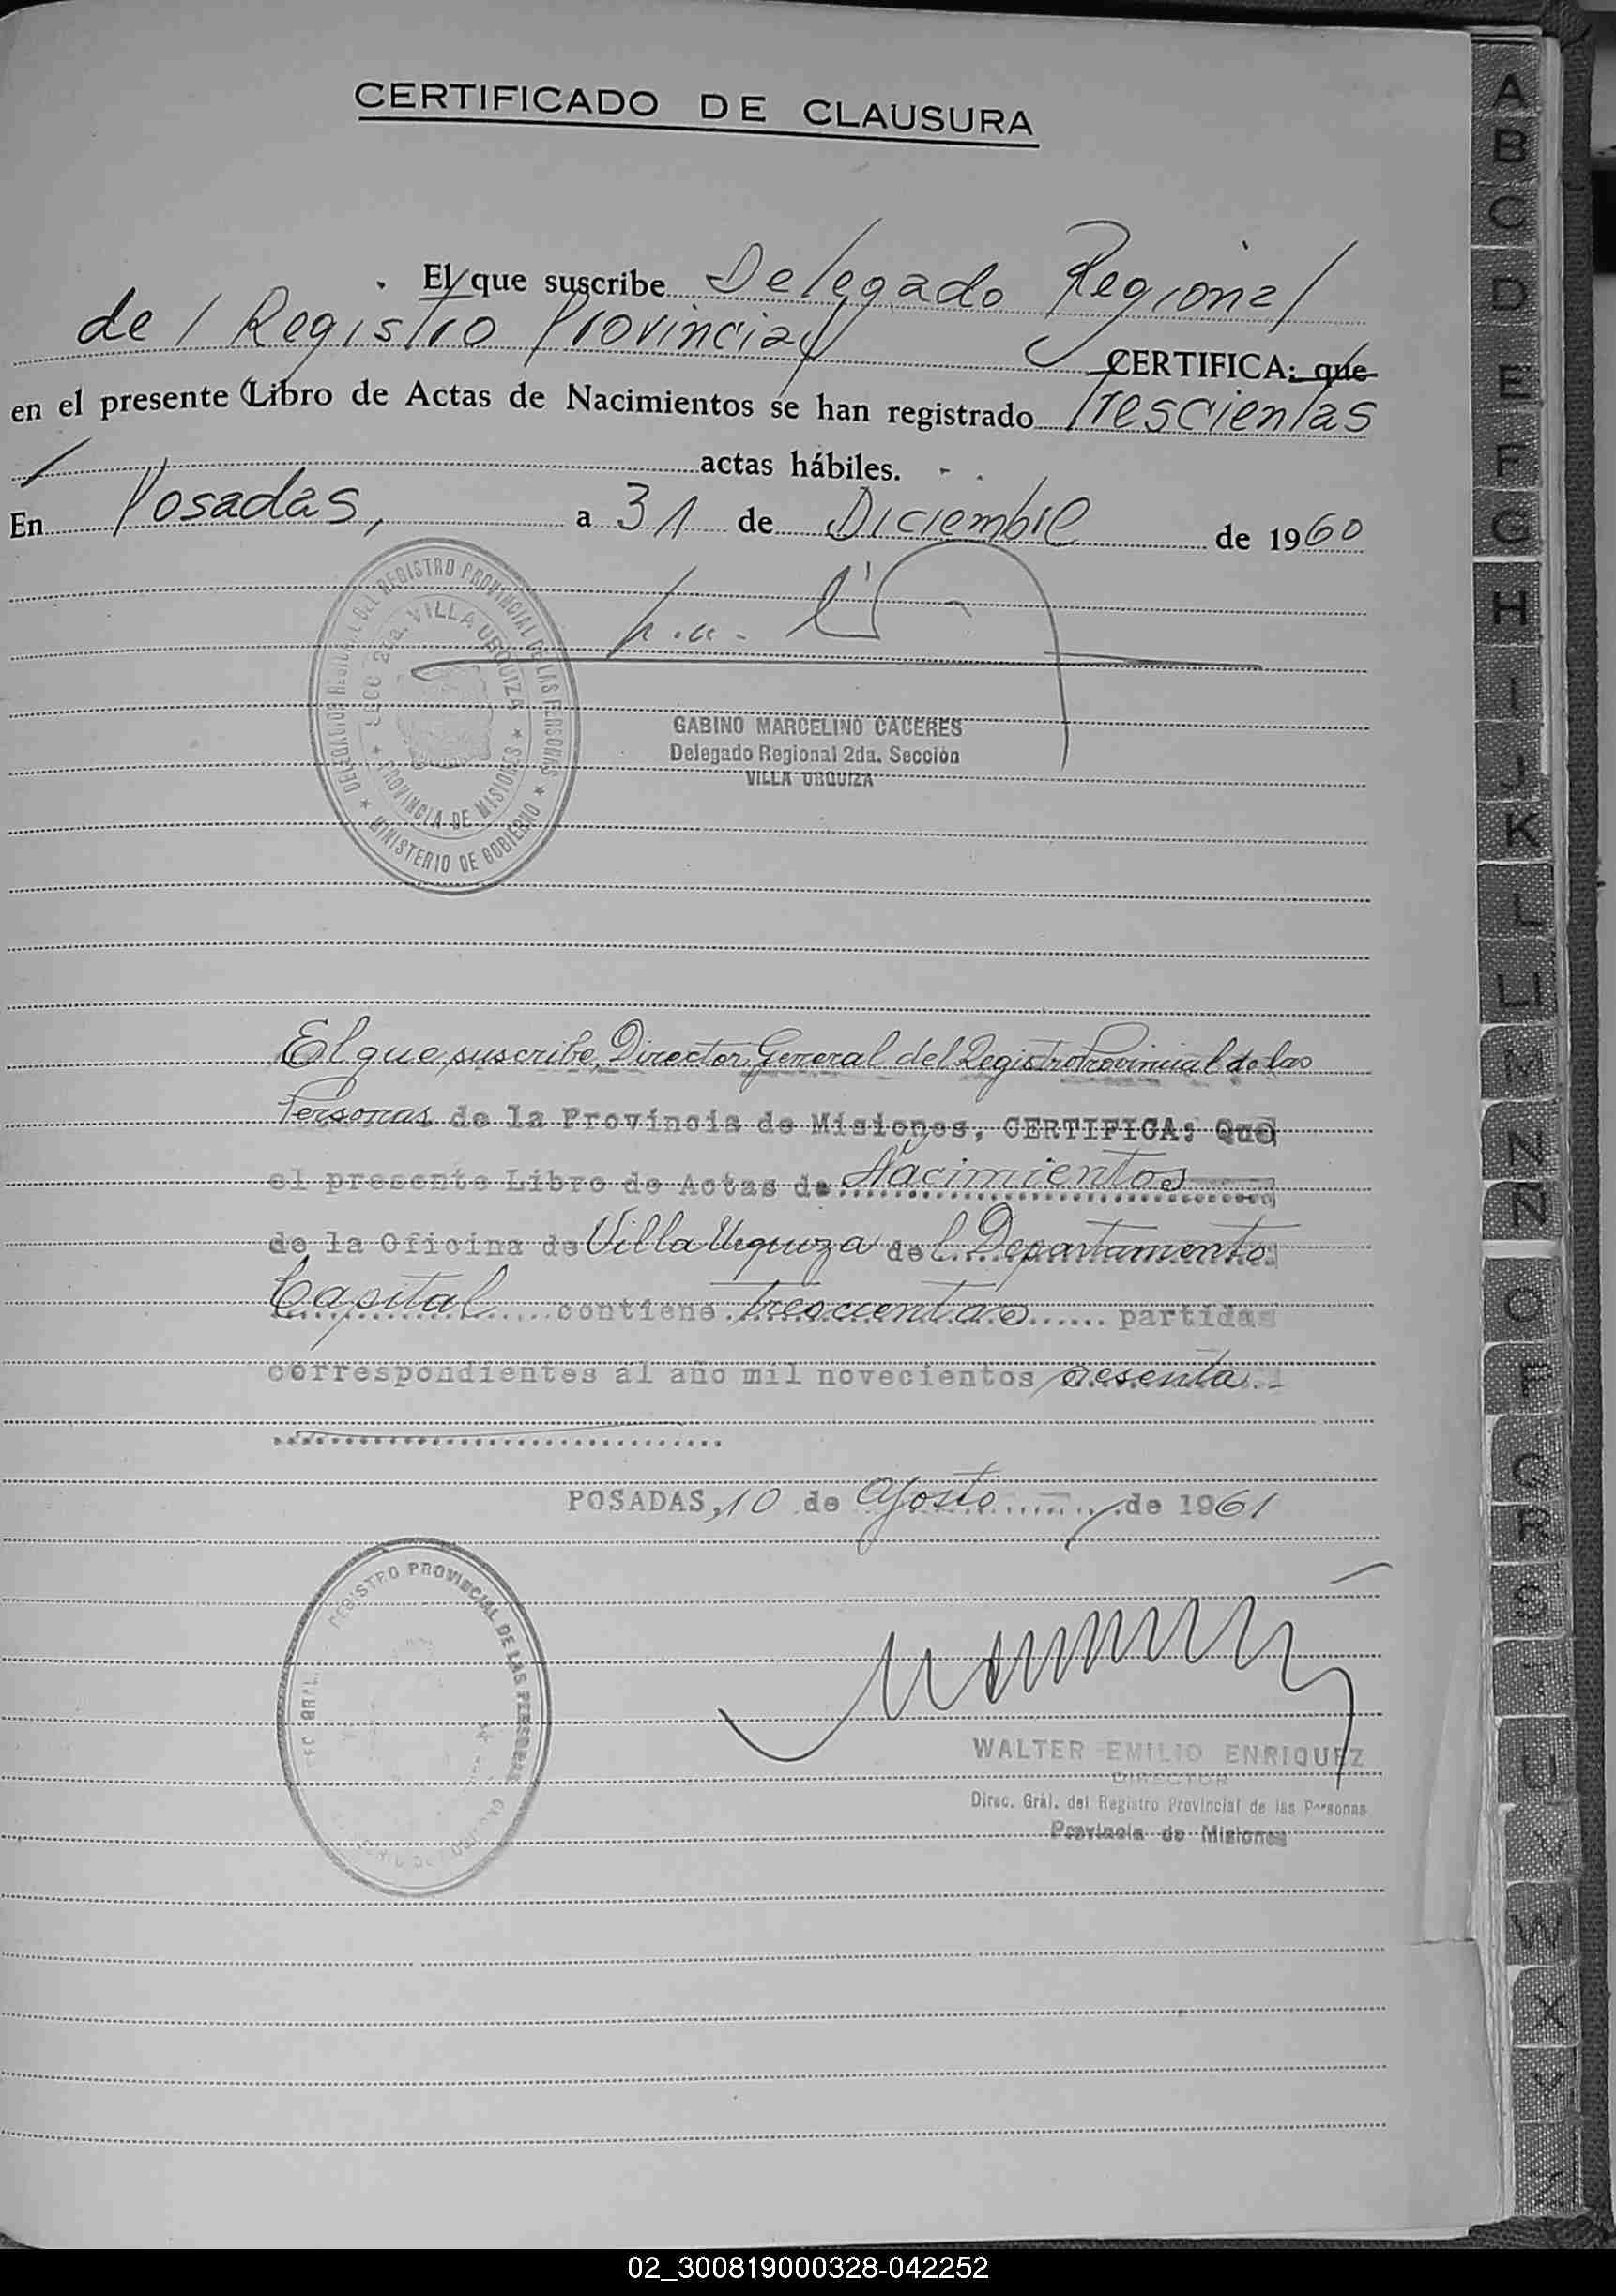 CERTIFICADO DE CLAUSURA
El que suscribe Delegado Regional
del Registro Provincial CERTIFICA: que
en el presente Libro de Actas de Nacimientos se han registrado Trescientas
actas hábiles. -
En Posadas, a 31 de Diciembre de 1960
DELEGACION REGIONAL DEL REGISTRO PROVINCIAL DE LAS PERSONAS
SECC 2da. VILLA URQUIZA
PROVINCIA DE MISIONES
MINISTERIO DE GOBIERNO
GABINO MARCELINO CACERES
Delegado Regional 2da. Sección
VILLA URQUIZA
El que suscribe, Director General del Registro Provincial de las
Personas de la Provincia de Misiones, CERTIFICA: Que
el presente Libro de Actas de Nacimientos
de la Oficina de Villa Urquiza del Departamento
Capital contiene trescientas partidas
correspondientes al año mil novecientos sesenta
POSADAS, 10 de Agosto de 1961
REGISTRO PROVINCIAL DE LAS PERSONAS
WALTER EMILIO ENRIQUEZ
DIRECTOR
Direc. Gral. del Registro Provincial de las Personas
Provincia de Misiones
A
B
C
D
E
F
G
H
I
J
K
L
LL
M
N
Ñ
O
P
Q
R
S
T
U
V
W
X
Y
Z
02_300819000328-042252